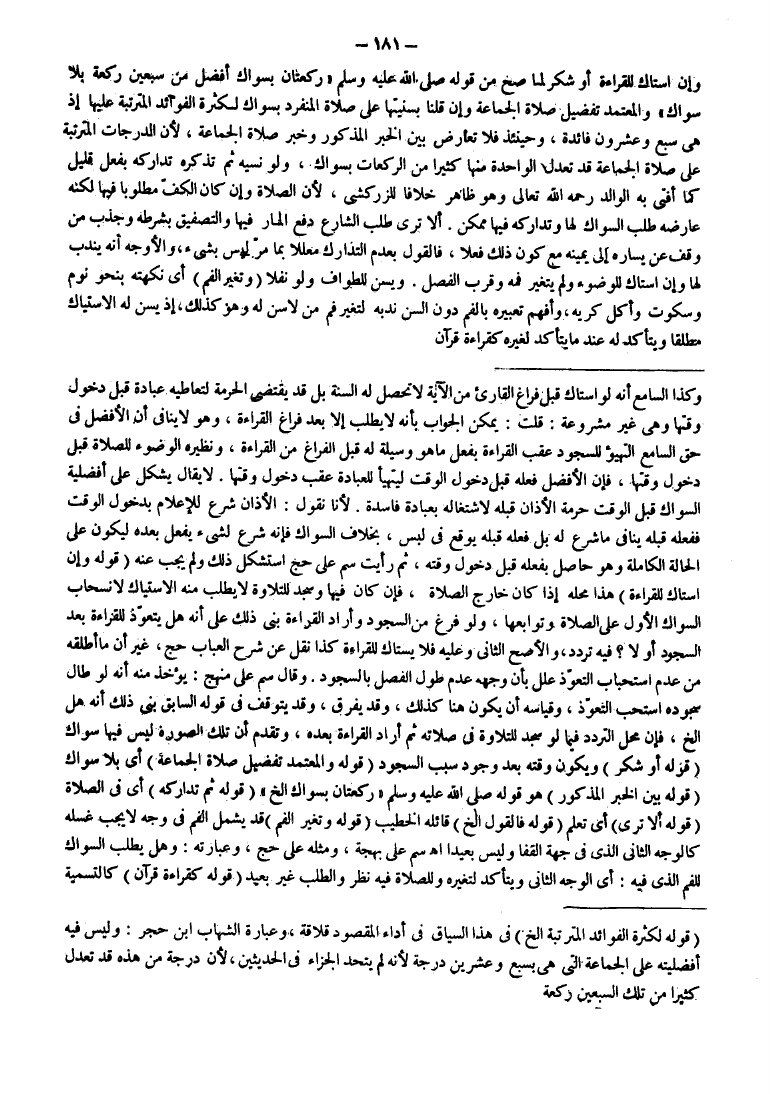 – ١٨١ –
وإن استاك للقراءة أو شكر لما صح من قوله صلى الله عليه وسلم « ركعتان بسواك أفضل من سبعين ركعة بلا
سواك » والمعتمد تفضيل صلاة الجماعة وإن قلنا بسنيتها على صلاة المنفرد بسواك لكثرة الفوائد المترتبة عليها إذ
هى سبع وعشرون فائدة ، وحينئذ فلا تعارض بين الخبر المذكور وخبر صلاة الجماعة ، لأن الدرجات المترتبة
على صلاة الجماعة قد تعدل الواحدة منها كثيرا من الركعات بسواك ، ولو نسيه ثم تذكره تداركه بفعل قليل
كما أفتى به الوالد رحمه الله تعالى وهو ظاهر خلافا للزركشى ، لأن الصلاة وإن كان الكفّ مطلوبا فيها لكنه
عارضه طلب السواك لها وتداركه فيها ممكن . ألا ترى طلب الشارع دفع المار فيها والتصفيق بشرطه وجذب من
وقف عن يساره إلى يمينه مع كون ذلك فعلا ، فالقول بعدم التدارك معللا بما مرّ ليس بشىء ، والأوجه أنه يندب
لها وإن استاك للوضوء ولم يتغير فمه وقرب الفصل . ويسن للطواف ولو نفلا ( وتغير الفم ) أى نكهته بنحو نوم
وسكوت وأكل كريه ، وأفهم تعبيره بالفم دون السن ندبه لتغير فم من لاسن له وهو كذلك ، إذ يسن له الاستياك
مطلقا ويتأكد له عند مايتأكد لغيره كقراءة قرآن
وكذا السامع أنه لو استاك قبل فراغ القارئ من الآية لاتحصل له السنة بل قد يقتضى الحرمة لتعاطيه عبادة قبل دخول
وقتها وهى غير مشروعة : قلت : يمكن الجواب بأنه لايطلب إلا بعد فراغ القراءة ، وهو لاينافى أن الأفضل فى
حق السامع التهيؤ للسجود عقب القراءة بفعل ماهو وسيلة له قبل الفراغ من القراءة ، ونظيره الوضوء للصلاة قبل
دخول وقتها ، فإن الأفضل فعله قبل دخول الوقت ليتهيأ للعبادة عقب دخول وقتها . لايقال يشكل على أفضلية
السواك قبل الوقت حرمة الأذان قبله لاشتغاله بعبادة فاسدة . لأنا نقول : الأذان شرع للإعلام بدخول الوقت
ففعله قبله ينافى ماشرع له بل فعله قبله يوقع فى لبس ، بخلاف السواك فإنه شرع لشىء يفعل بعده ليكون على
الحالة الكاملة وهو حاصل بفعله قبل دخول وقته ، ثم رأيت سم على حج استشكل ذلك ولم يجب عنه ( قوله وإن
استاك للقراءة ) هذا محله إذا كان خارج الصلاة ، فإن كان فيها وسجد للتلاوة لايطلب منه الاستياك لانسحاب
السواك الأول على الصلاة وتوابعها ، ولو فرغ من السجود وأراد القراءة بنى ذلك على أنه هل يتعوّذ للقراءة بعد
السجود أو لا ؟ فيه تردد ، والأصح الثانى وعليه فلا يستاك للقراءة كذا نقل عن شرح العباب حج ، غير أن ماأطلقه
من عدم استحباب التعوّذ علل بأن وجهه عدم طول الفصل بالسجود . وقال سم على منهج : يؤخذ منه أنه لو طال
سجوده استحب التعوّذ ، وقياسه أن يكون هنا كذلك ، وقد يفرق ، وقد يتوقف فى قوله السابق بنى ذلك أنه هل
الخ ، فإن محل التردد فيما لو سجد للتلاوة فى صلاته ثم أراد القراءة بعده ، وتقدم أن تلك الصورة ليس فيها سواك
( قوله أو شكر ) ويكون وقته بعد وجود سبب السجود ( قوله والمعتمد تفضيل صلاة الجماعة ) أى بلا سواك
( قوله بين الخبر المذكور ) هو قوله صلى الله عليه وسلم « ركعتان بسواك الخ » ( قوله ثم تداركه ) أى فى الصلاة
( قوله ألا ترى ) أى تعلم ( قوله فالقول الخ ) قائله الخطيب ( قوله وتغير الفم ) قد يشمل الفم فى وجه لايجب غسله
كالوجه الثانى الذى فى جهة القفا وليس بعيدا اه سم على بهجة ، ومثله على حج ، وعبارته : وهل يطلب السواك
للفم الذى فيه : أى الوجه الثانى ويتأكد لتغيره وللصلاة فيه نظر والطلب غير بعيد ( قوله كقراءة قرآن ) كالتسمية
( قوله لكثرة الفوائد المترتبة الخ ) فى هذا السياق فى أداء المقصود قلاقة ، وعبارة الشهاب ابن حجر : وليس فيه
أفضليته على الجماعة التى هى بسبع وعشرين درجة لأنه لم يتحد الجزاء فى الحديثين ، لأن درجة من هذه قد تعدل
كثيرا من تلك السبعين ركعة